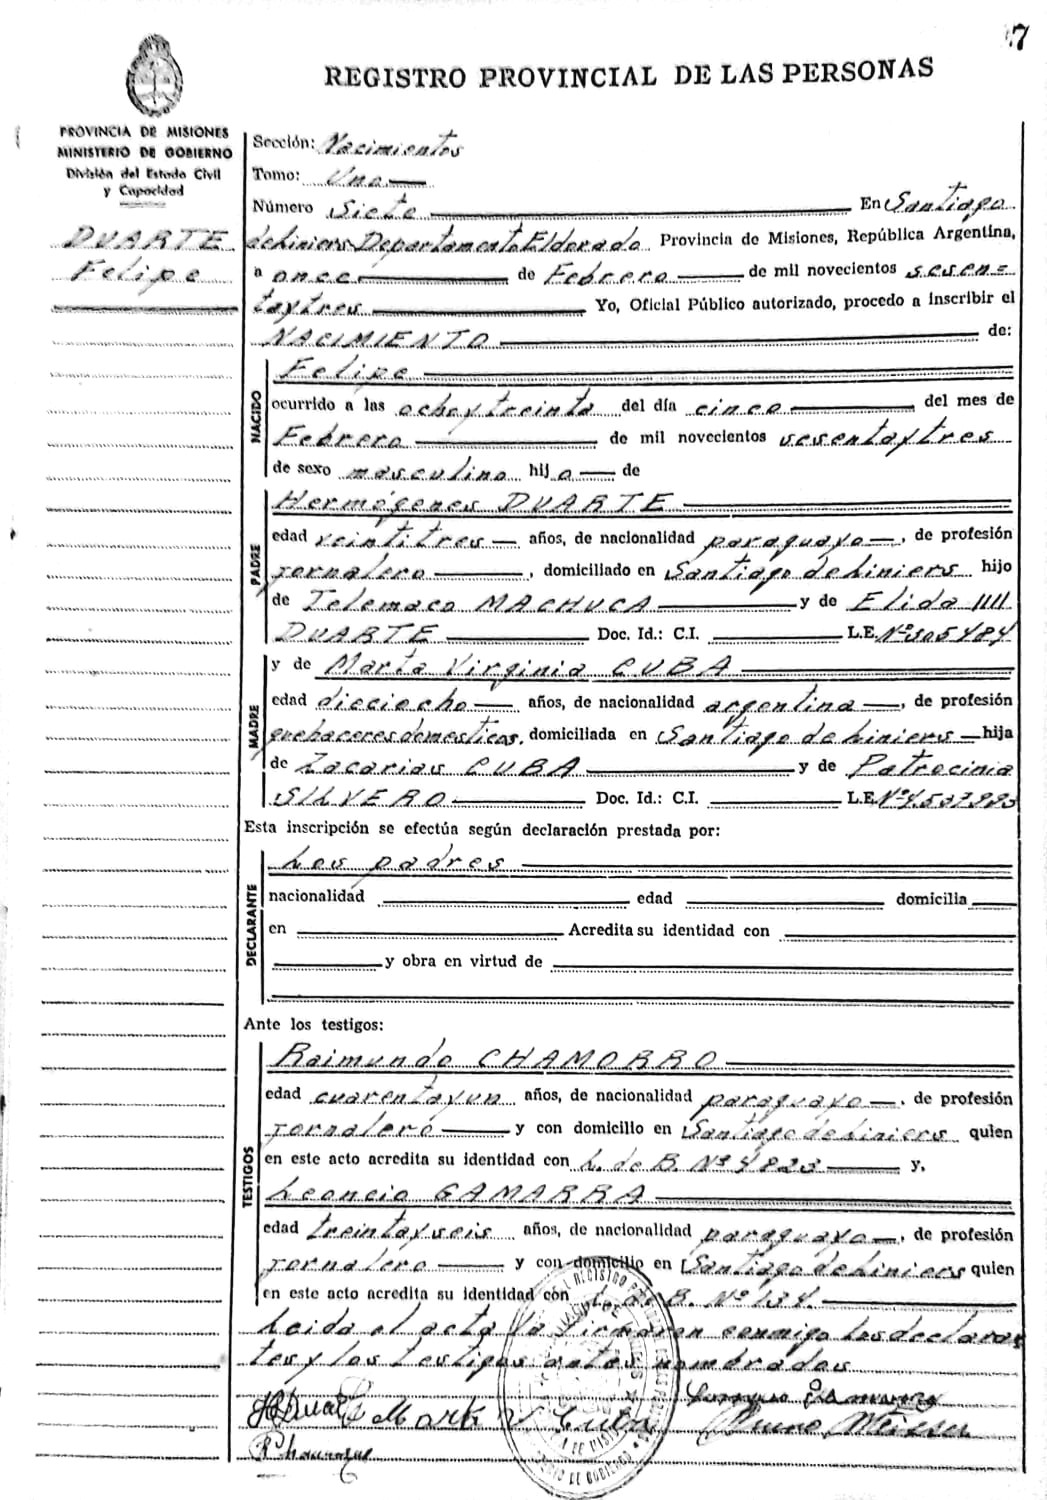 7
REGISTRO PROVINCIAL DE LAS PERSONAS
PROVINCIA DE MISIONES
MINISTERIO DE GOBIERNO
División del Estado Civil
y Capacidad
DUARTE
Felipe
Sección: Nacimientos
Tomo: Uno
Número Siete En Santiago
de Liniers Departamento Eldorado Provincia de Misiones, República Argentina,
a once de Febrero de mil novecientos sesen=
taytres Yo, Oficial Público autorizado, procedo a inscribir el
NACIMIENTO de:
NACIDO
Felipe
ocurrido a las ochoytreinta del día cinco del mes de
Febrero de mil novecientos sesentaytres
de sexo masculino hijo de
PADRE
Hermógenes DUARTE
edad veintitres años, de nacionalidad paraguaya, de profesión
jornalero, domiciliado en Santiago de Liniers hijo
de Telemaco MACHUCA y de Elida
DUARTE Doc. Id.: C.I. L.E. Nº 305484
MADRE
y de Marta Virginia CUBA
edad dieciocho años, de nacionalidad argentina, de profesión
quehaceres domesticos, domiciliada en Santiago de Liniers hija
de Zacarias CUBA y de Patrocinia
SILVERO Doc. Id.: C.I. L.E. Nº
Esta inscripción se efectúa según declaración prestada por:
DECLARANTE
Los padres
nacionalidad edad domicilia
en Acredita su identidad con
y obra en virtud de
Ante los testigos:
TESTIGOS
Raimundo CHAMORRO
edad cuarentayun años, de nacionalidad paraguaya, de profesión
jornalero y con domicilio en Santiago de Liniers quien
en este acto acredita su identidad con L. de B. Nº 4823 y,
Leoncio GAMARRA
edad treintayseis años, de nacionalidad paraguaya, de profesión
jornalero y con domicilio en Santiago de Liniers quien
en este acto acredita su identidad con L. de B. Nº 134.
Leida el acta la firmaron conmigo los declaran
tes y los testigos antes nombrados
H Duarte Marta V Cuba